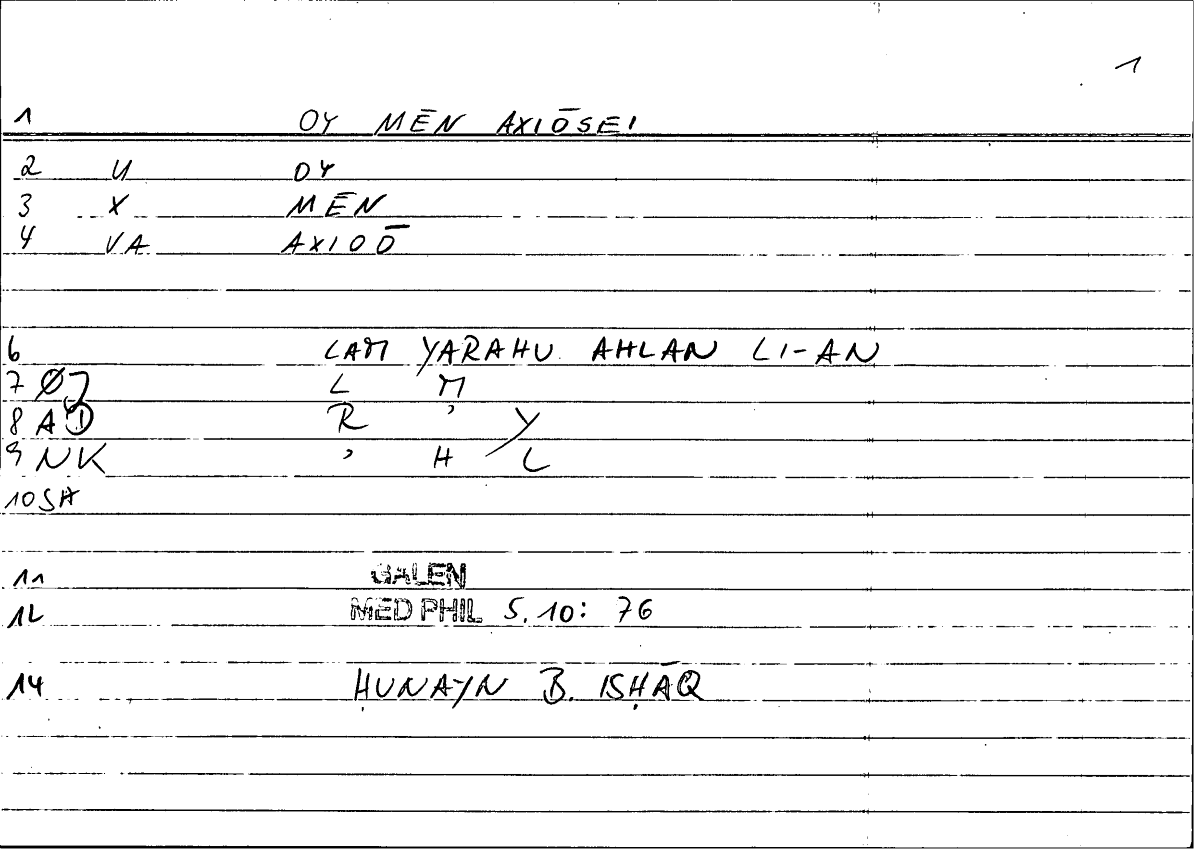 1
1 OY MĒN AXIŌSEI
2 U OY
3 X MĒN
4 VA AXIOŌ
6 LAM YARAHU AHLAN LI-AN
7 ØJ L M
8 AD R ʾ Y
9 NK ʾ H L
10 SA
11 GALEN
12 MED PHIL 5.10: 76
14 ḤUNAYN B. ISḤĀQ